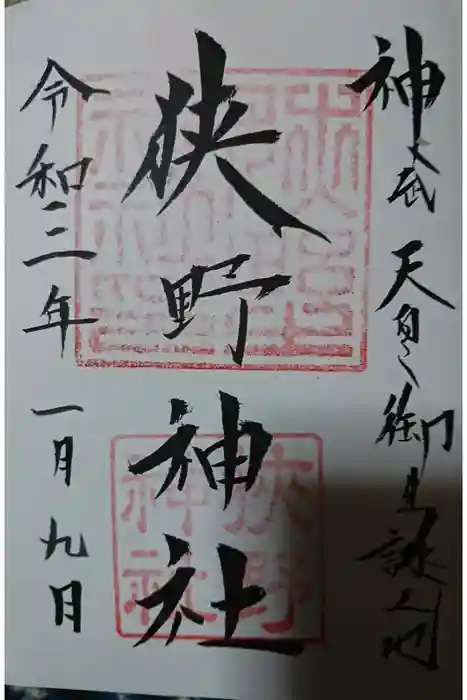 神武天皇御生誕之地
狭野神社
令和三年一月九日
狭野神社